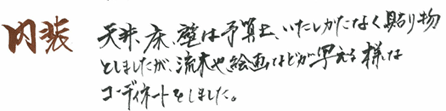 内装
天井、床、壁は予算上、いたしかたなく貼り物
としましたが、流木や絵画などが写える様な
コーディネートをしました。